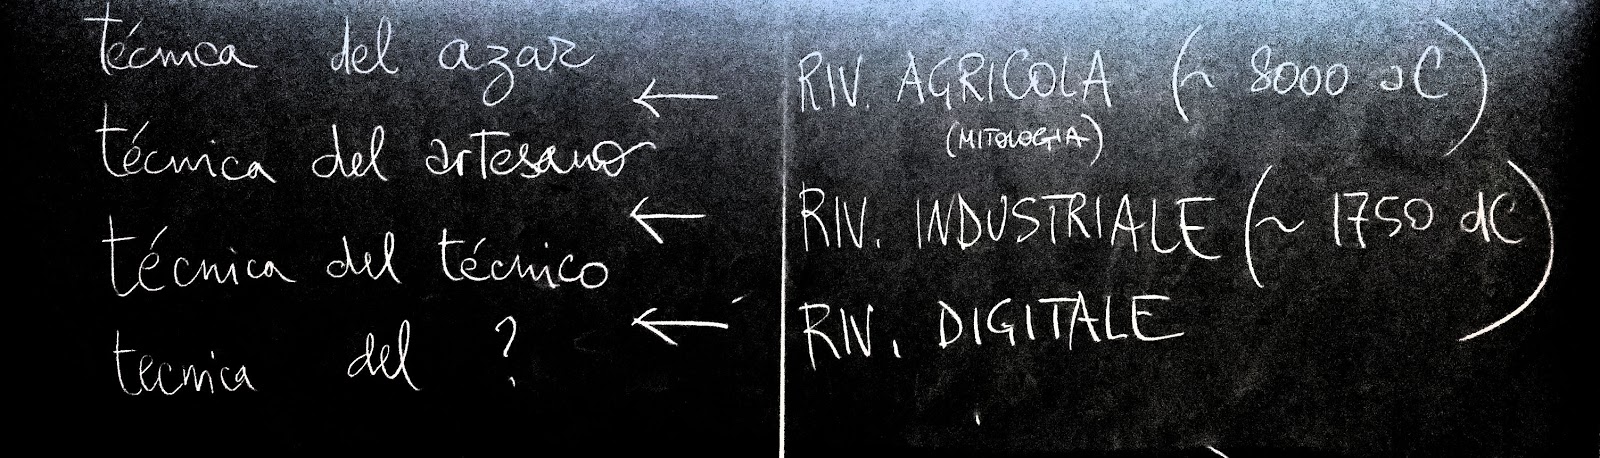 técnica del azar
técnica del artesano
técnica del técnico
tecnica del ?
← RIV. AGRICOLA (~ 8000 aC)
(MITOLOGIA)
← RIV. INDUSTRIALE (~ 1750 dC)
← RIV. DIGITALE